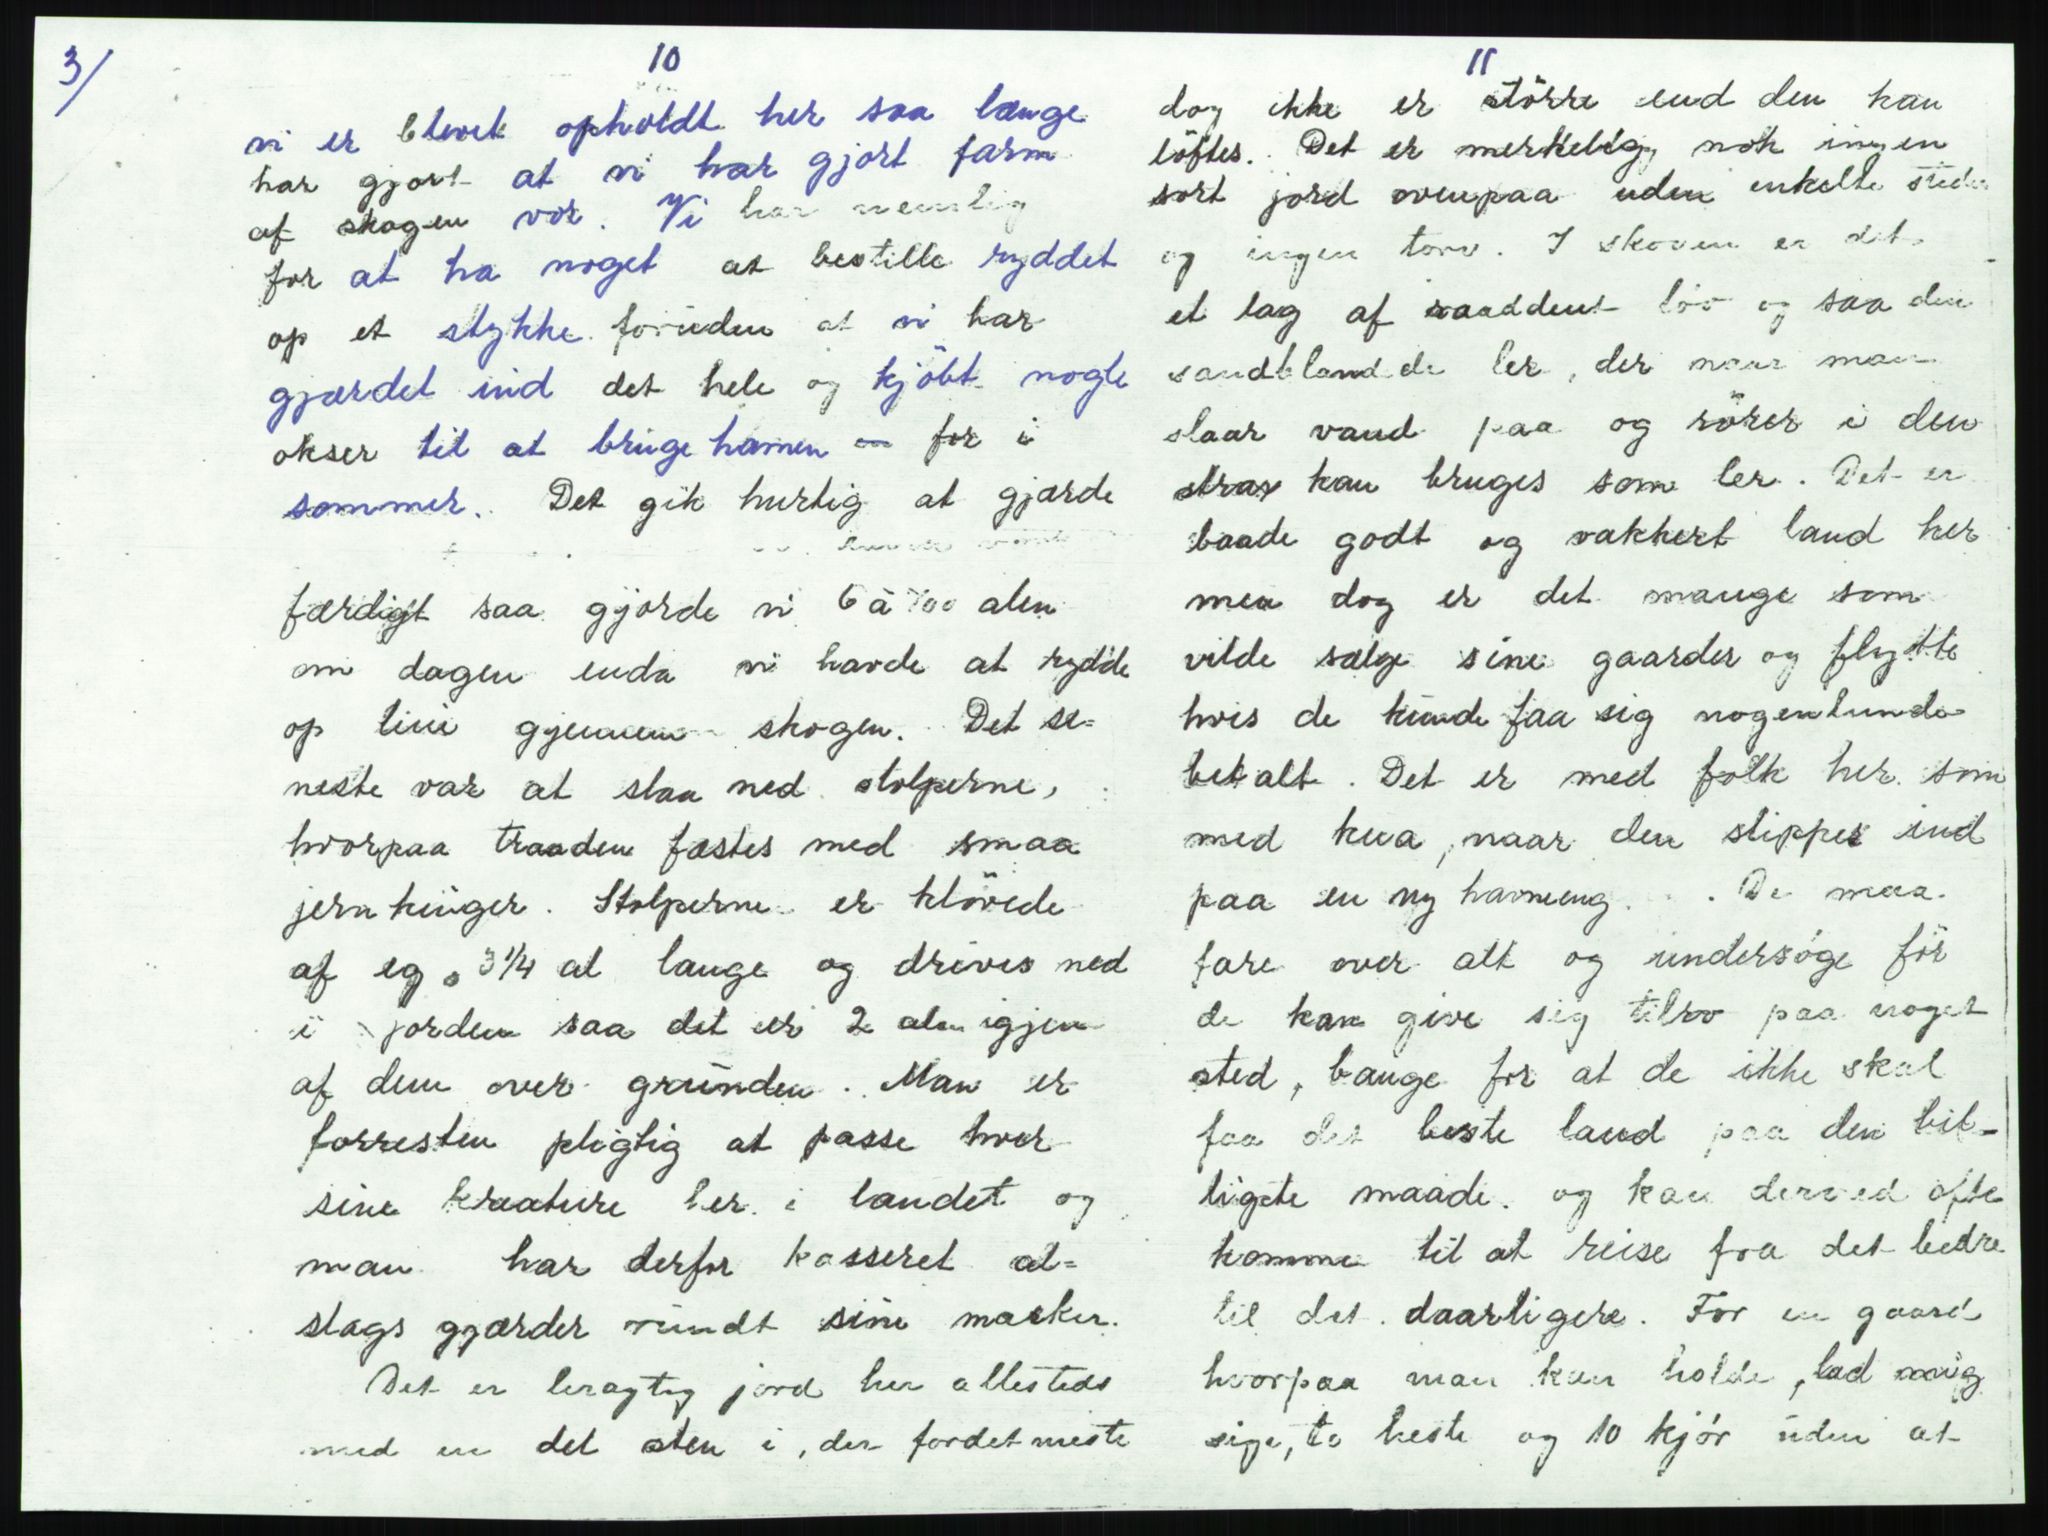 3/
10
vi er blevet opholdt her saa længe
har gjort at vi har gjort farm
af skogen vor. Vi har nemlig
for at ha noget at bestille ryddet
op et stykke foruden at vi har
gjærdet ind det hele og kjöbt nogle
okser til at bruge havnen for i
sommer. Det gik hurtig at gjærde
færdigt saa gjorde vi 6 à 700 alen
om dagen enda vi havde at rydde
op linie gjennem skogen. Det se=
neste var at slaa ned stolperne,
hvorpaa traaden fæstes med smaa
jernkinger. Stolperne er klövede
af eg 3 1/4 al lange og drives ned
i jorden saa det er 2 alen igjen
af dem over grunden. Man er
forresten pligtig at passe hver
sine kreature her i landet og
man har derfor kasseret al=
slags gjærder rundt sine marker.
Det er leragtig jord her allesteds
med en del sten i, der fordetmeste
11
dog ikke er större end den kan
löftes. Det er merkelig nok ingen
sort jord ovenpaa uden enkelte steder
og ingen torv. I skoven er det
et lag af raaddent löv og saa den
sandblandede ler, der naar man
slaar vand paa og rörer i den
strax kan bruges som ler. Det er
baade godt og vakkert land her
men dog er det mange som
vilde sælge sine gaarder og flytte
hvis de kunde faa sig nogenlunde
betalt. Det er med folk her som
med kua, naar den slippes ind
paa en ny havneeng. De maa
fare over alt og undersöge för
de kan give sig tilro paa noget
sted, bange for at de ikke skal
faa det beste land paa den bil-
ligste maade og kan derved ofte
komme til at reise fra det bedre
til det daarligere. For en gaard
hvorpaa man kan holde, lad mig
sige, to heste og 10 kjör uden at